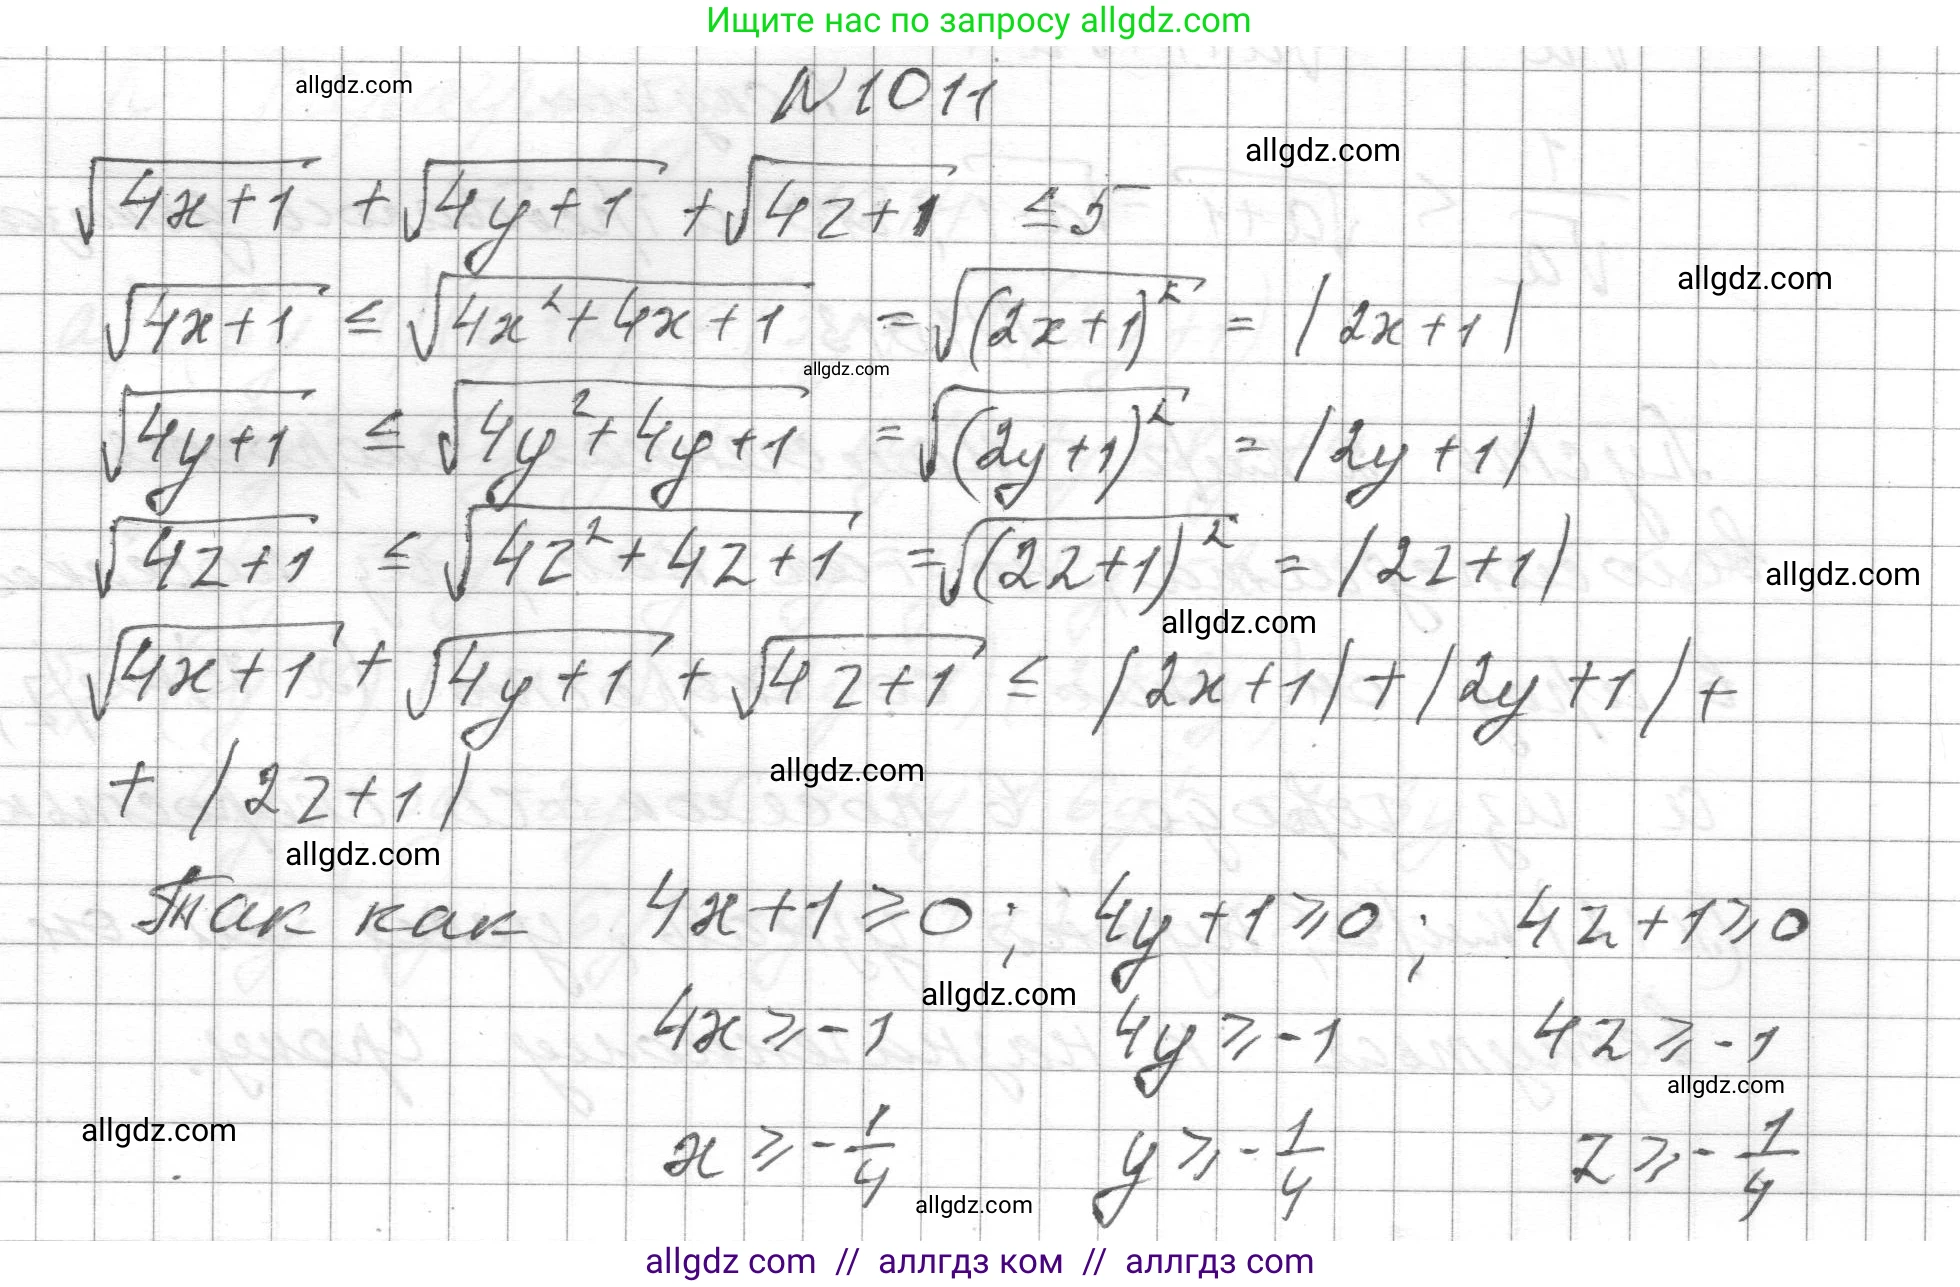 Ищите нас по запросу allgdz.com
allgdz.com
N 1011
allgdz.com
√(4x+1) + √(4y+1) + √(4z+1) ≤ 5
allgdz.com
√(4x+1) ≤ √(4x²+4x+1) = √((2x+1)²) = |2x+1|
allgdz.com
√(4y+1) ≤ √(4y²+4y+1) = √((2y+1)²) = |2y+1|
√(4z+1) ≤ √(4z²+4z+1) = √((2z+1)²) = |2z+1|
allgdz.com
allgdz.com
√(4x+1) + √(4y+1) + √(4z+1) ≤ |2x+1| + |2y+1| +
+ |2z+1|
allgdz.com
allgdz.com
Так как 4x+1 ≥ 0; 4y+1 ≥ 0; 4z+1 ≥ 0
allgdz.com
4x ≥ -1 4y ≥ -1 4z ≥ -1
allgdz.com
allgdz.com
x ≥ -1/4 y ≥ -1/4 z ≥ -1/4
allgdz.com
allgdz com // аллгдз ком // аллгдз com